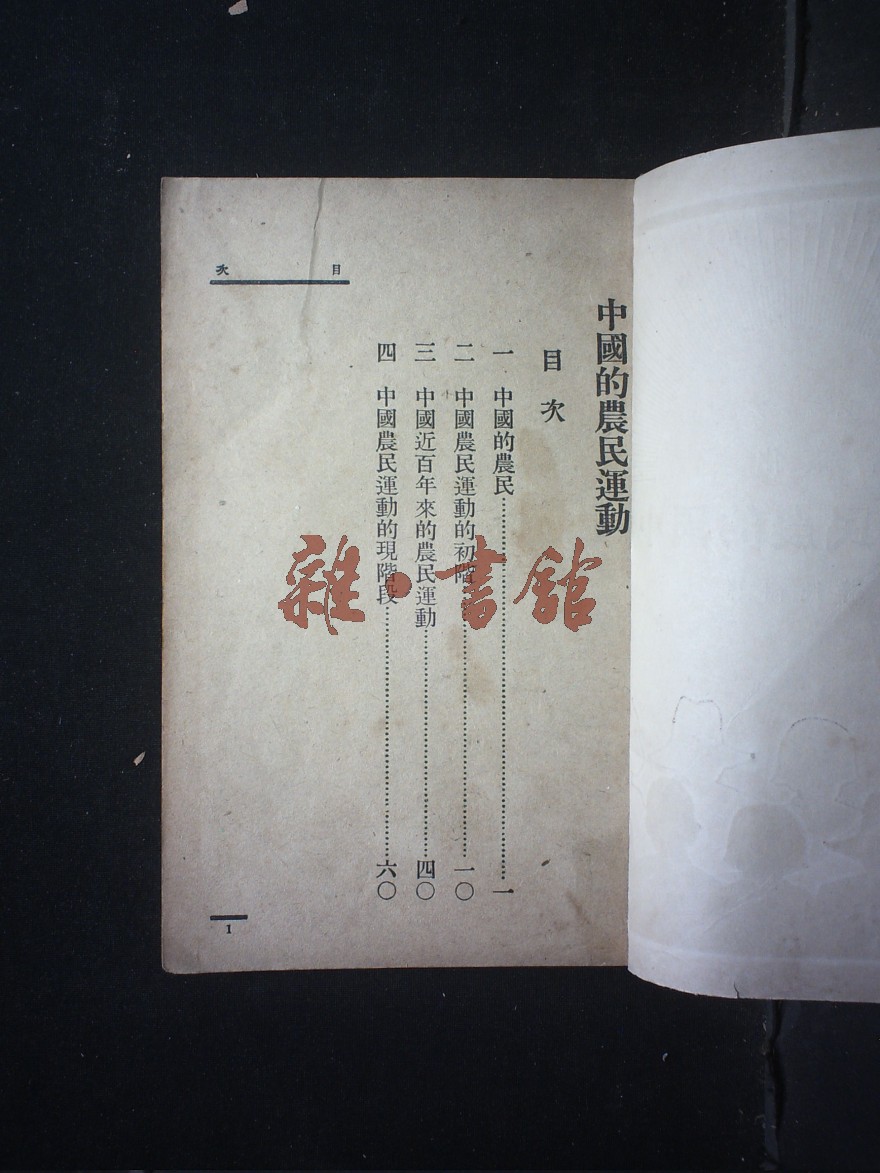 中國的農民運動
目次
一　中國的農民……………………一
二　中國農民運動的初階……………………一〇
三　中國近百年來的農民運動……………………四〇
四　中國農民運動的現階段……………………六〇
目次
1
雜·書館